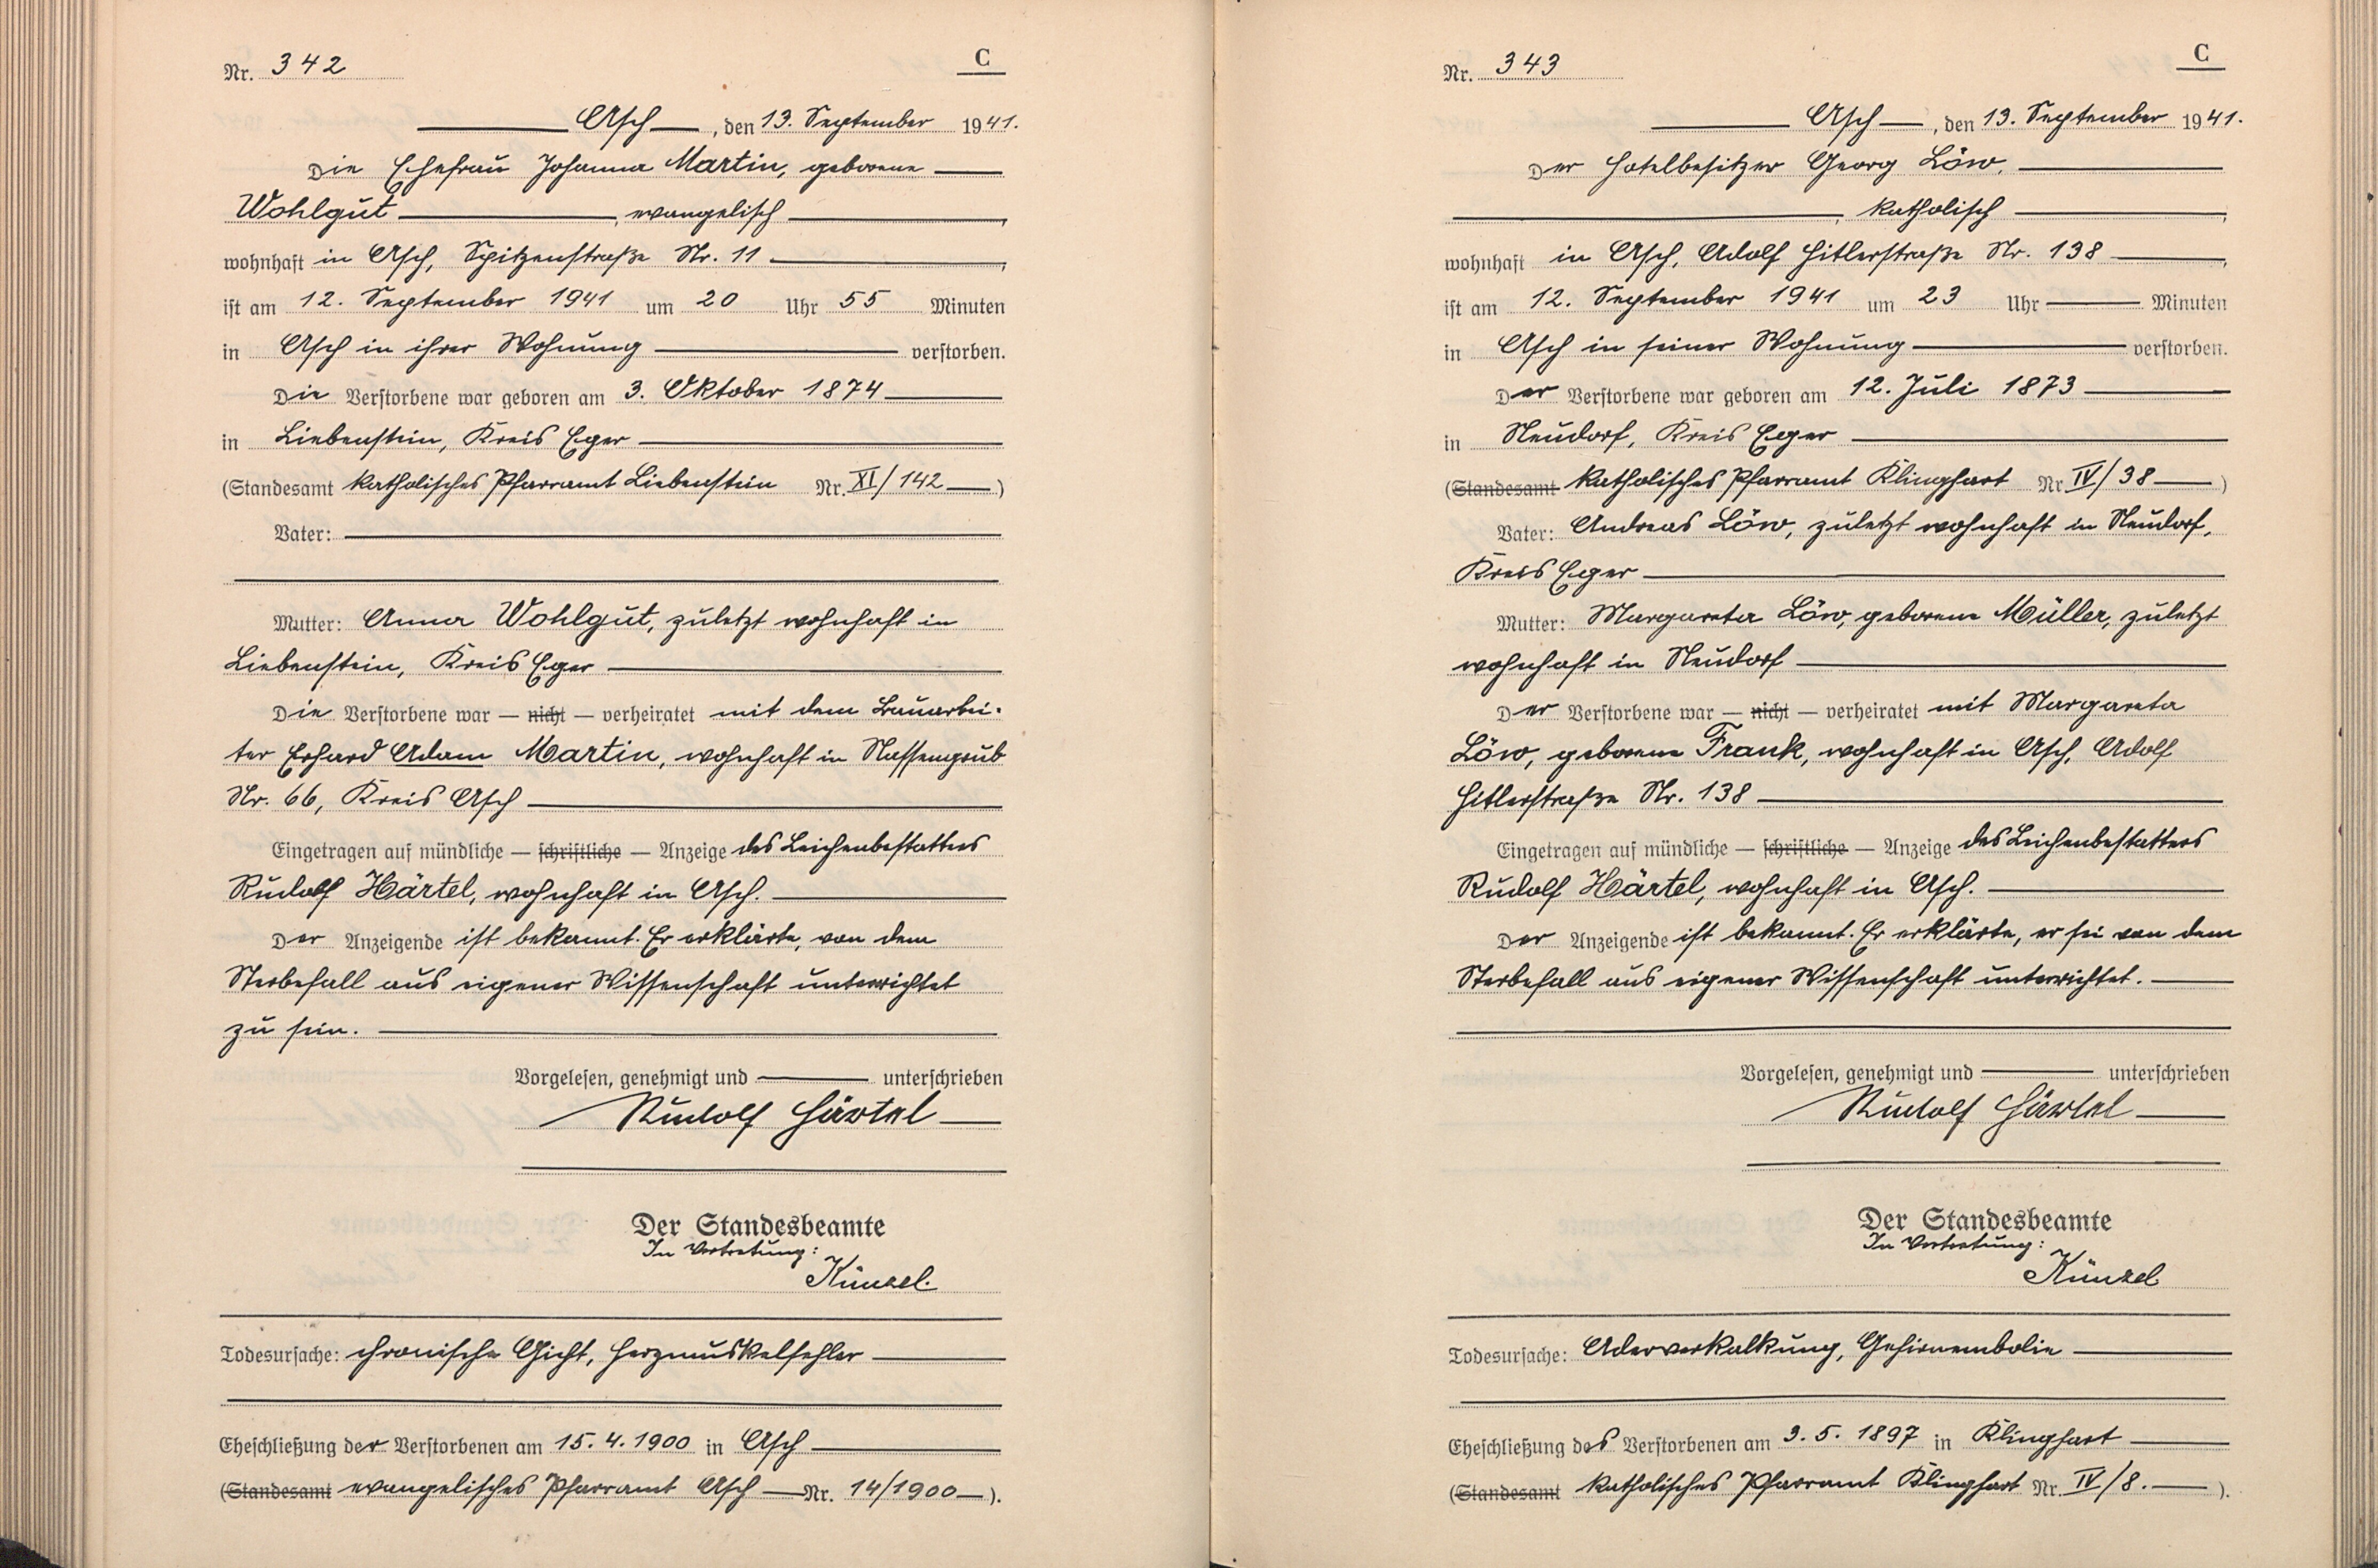 Nr. 342
C
Asch, den 13. September 1941.
Die Ehefrau Johanna Martin, geborene
Wohlgut, evangelisch,
wohnhaft in Asch, Spitzenstraße Nr. 11,
ist am 12. September 1941 um 20 Uhr 55 Minuten
in Asch in ihrer Wohnung verstorben.
Die Verstorbene war geboren am 3. Oktober 1874
in Liebenstein, Kreis Eger
(Standesamt katholisches Pfarramt Liebenstein Nr. XI/142)
Vater:
Mutter: Anna Wohlgut, zuletzt wohnhaft in
Liebenstein, Kreis Eger
Die Verstorbene war — nicht — verheiratet mit dem Bauarbei-
ter Erhard Adam Martin, wohnhaft in Nassengrub
Nr. 66, Kreis Asch
Eingetragen auf mündliche — schriftliche — Anzeige des Leichenbestatters
Rudolf Härtel, wohnhaft in Asch.
Der Anzeigende ist bekannt. Er erklärte, von dem
Sterbefall aus eigener Wissenschaft unterrichtet
zu sein.
Vorgelesen, genehmigt und unterschrieben
Rudolf Härtel
Der Standesbeamte
In Vertretung:
Künzel.
Todesursache: chronische Gicht, Herzmuskelfehler
Eheschließung der Verstorbenen am 15.4.1900 in Asch
(Standesamt evangelisches Pfarramt Asch Nr. 14/1900).
Nr. 343
C
Asch, den 13. September 1941.
Der Hotelbesitzer Georg Löw,
, katholisch,
wohnhaft in Asch, Adolf Hitlerstraße Nr. 138,
ist am 12. September 1941 um 23 Uhr Minuten
in Asch in seiner Wohnung verstorben.
Der Verstorbene war geboren am 12. Juli 1873
in Neudorf, Kreis Eger
(Standesamt katholisches Pfarramt Klinghart Nr. IV/38)
Vater: Andreas Löw, zuletzt wohnhaft in Neudorf,
Kreis Eger
Mutter: Margareta Löw, geborene Müller, zuletzt
wohnhaft in Neudorf
Der Verstorbene war — nicht — verheiratet mit Margareta
Löw, geborene Frank, wohnhaft in Asch, Adolf
Hitlerstraße Nr. 138
Eingetragen auf mündliche — schriftliche — Anzeige des Leichenbestatters
Rudolf Härtel, wohnhaft in Asch.
Der Anzeigende ist bekannt. Er erklärte, er sei von dem
Sterbefall aus eigener Wissenschaft unterrichtet.
Vorgelesen, genehmigt und unterschrieben
Rudolf Härtel
Der Standesbeamte
In Vertretung:
Künzel
Todesursache: Aderverkalkung, Gehirnembolie
Eheschließung des Verstorbenen am 3.5.1897 in Klinghart
(Standesamt katholisches Pfarramt Klinghart Nr. IV/8.).